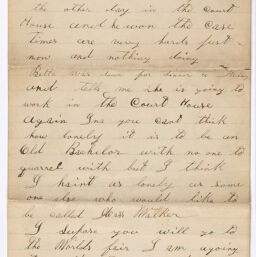 the other day in the Court
House and he won the Case
times are very hards just
now and nothing doing
Belle was down for dinner
and tells me she is going to
work in the Court House
again Ina you cant think
how lonely it is to be an
Old Bachelor with no one to
quarrel with but I think
I haint as lonely as some
one else who would like to
be called Mother
I supose you will go to
the Worlds fair I am agoing